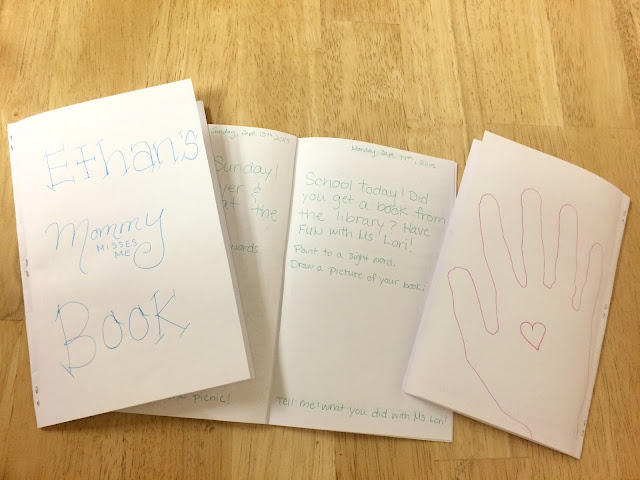 Ethan's
Mommy
MISSES
ME
BOOK
Sunday, Sept. 13th 2015
Sunday!
&
the
words
picnic!
Monday, Sept. 14th, 2015
School today! Did
you get a book from
the library? Have
Fun with Ms. Lori!
Point to a sight word.
Draw a picture of your book.
Tell me what you did with Ms. Lori!